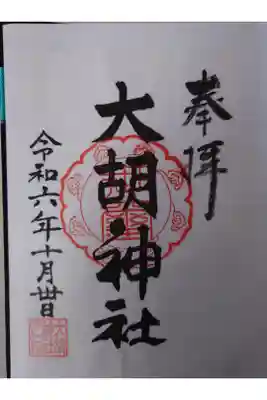 奉拝
大胡神社
令和六年十月卅日